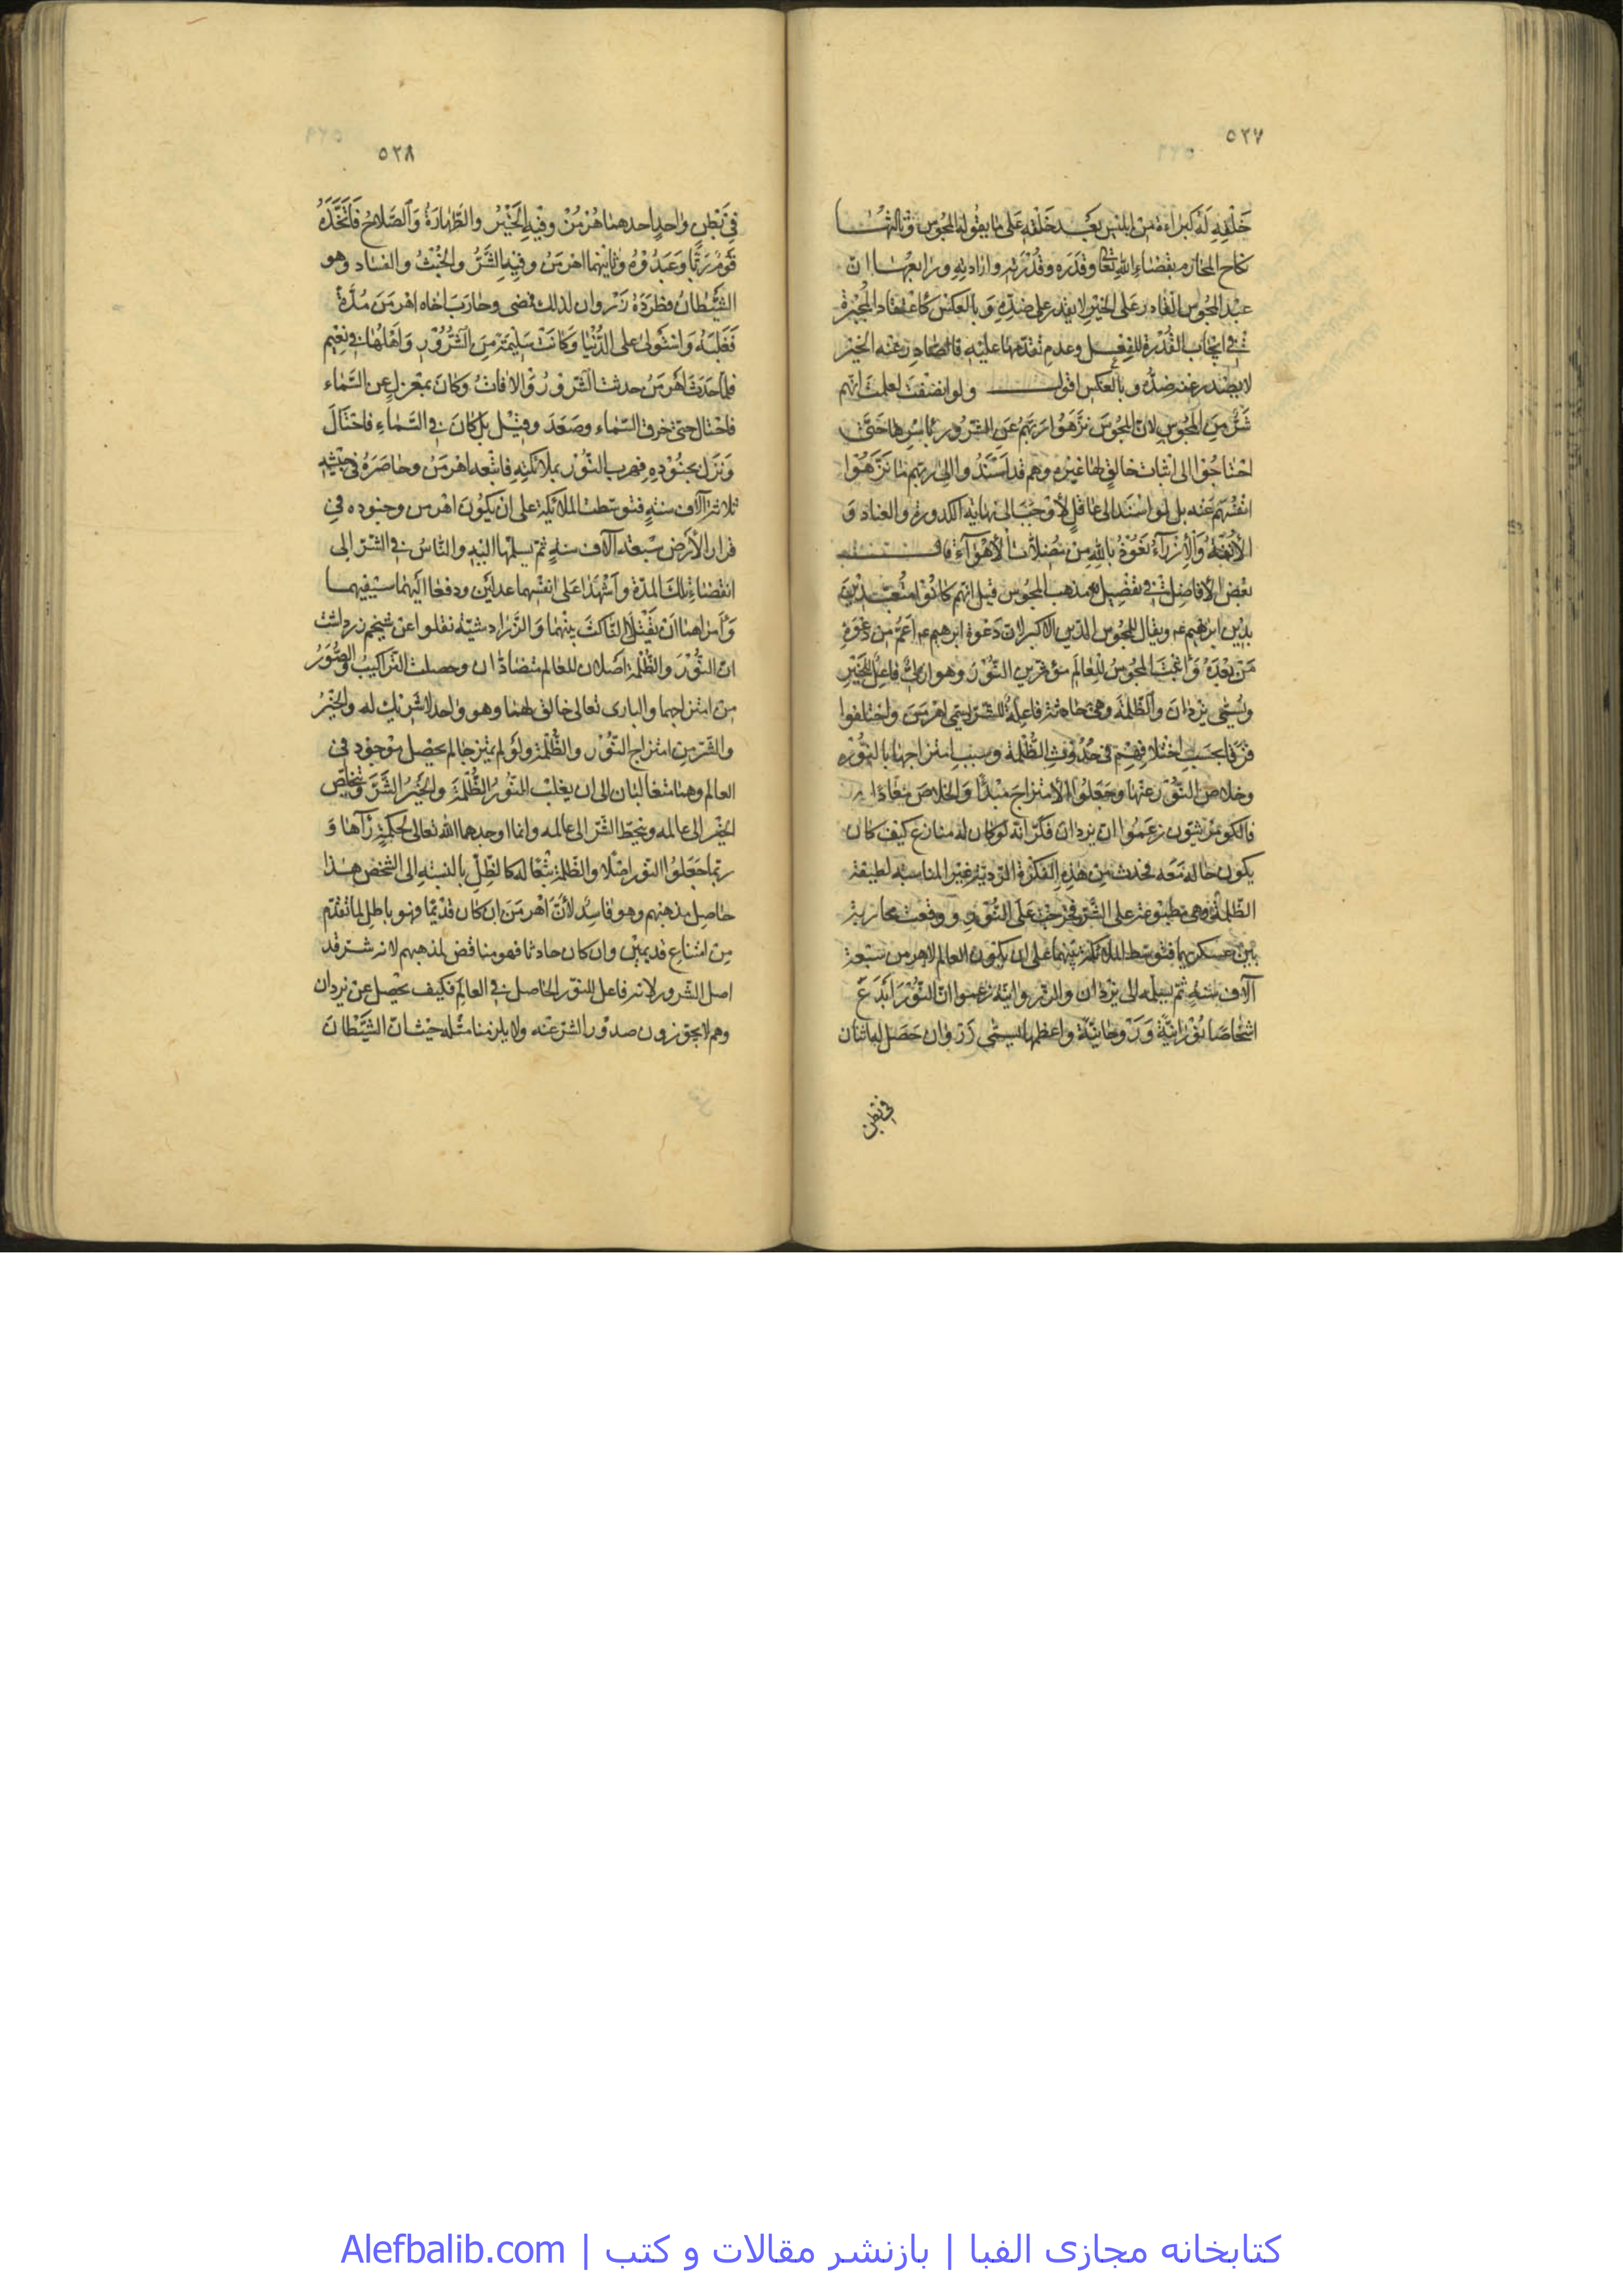 ٥٢٧
خَلْقِهِ لَهُ كبراءة من ابليس بعد خَلْقِهِ عَلى ما يقوله المجوس وثالثها
نكاح المحارم بقضاء الله تعالى وقدره وقدرته وارادته ورابعها ان
عند المجوس القادر على الخير لا يقدر على ضده وبالعكس كاعتقاد المجبرة
في ايجاب القدرة للفعل وعدم تقدمها عليه فالصادر عنه الخير
لا يصدر عنه ضده وبالعكس اقول ولو انصفت لعلمت انهم
شر من المجوس لان المجوس نزهوا ربهم عن الشرور باسرها حتى
احتاجوا الى اثبات خالق لها غيره وهم قد اسندوا الى ربهم ما نزهوا
انفسهم عنه بل لو اسند الى عاقل لأوجب الى نهاية الكدورة والعناد و
الأنفة والازراء نعوذ بالله من مضلات الأهواء قال
بعض الأفاضل في تفصيل مذهب المجوس قيل انهم كانوا متعبدين
بدين ابرهيم عم ويقال للمجوس الدين الاكبر لان دعوة ابرهيم عم اعم من دعوة
من بعده واثبت المجوس للعالم مؤثرين النور وهو ازلي فاعل للخير
ويسمى يزدان والظلمة وهي حادثة فاعلة للشر يسمى اهرمن واختلفوا
فرقا بحسب اختلافهم في حدوث الظلمة وسبب امتزاجها بالنور
وخلاص النور عنها وجعلوا الامتزاج مبدأ والخلاص معادا
فالكيومرثيون زعموا ان يزدان فكر انه لو كان له منازع كيف كان
يكون حاله معه فحدث من هذه الفكرة الردية غير المناسبة لطبيعة
الظلمة وهي مطبوعة على الشر فخرجت على النور ووقعت محاربة
بين عسكريهما فتوسط الملائكة بينهما على ان يكون العالم لاهرمن سبعة
آلاف سنة ثم يسلمه الى يزدان والزروانية زعموا ان النور ابدع
اشخاصا نورانية وروحانية واعظمها يسمى زروان حصل له اثنان
في بطن
٥٢٨
في بطن واحد احدهما هرمز وفيه الخير والطهارة والصلاح فاتخذه
قوم ربا وعبدوه وثانيهما اهرمن وفيه الشر والخبث والفساد وهو
الشيطان فطرده زروان لذلك فمضى وحارب اخاه اهرمن مدة
فغلبه واستولى على الدنيا وكانت سليمة من الشرور واهلها في نعيم
فلما حدث اهرمن حدثت الشرور والافات وكان بمعزل عن السماء
فاحتال حتى خرق السماء وصعد وقيل بل كان في السماء فاحتال
ونزل بجنوده فهرب النور بملائكته فاتبعه اهرمن وحاصره في جنته
ثلاثة آلاف سنة فتوسطت الملائكة على ان يكون اهرمن وجنوده في
قرار الأرض سبعة آلاف سنة ثم يسلمها اليه والناس في الشر الى
انقضاء تلك المدة واشهدا على انفسهما عدلين ودفعا اليهما سيفيهما
وامراهما ان يقتلا الناكث بينهما والزرادشتية نقلوا عن شيخهم زرداشت
ان النور والظلمة اصلان للعالم متضادان وحصلت التراكيب والصور
من امتزاجهما والبارى تعالى خالق لهما وهو واحد لا شريك له والخير
والشر من امتزاج النور والظلمة ولو لم يمتزجا لم يحصل موجود في
العالم وهما متغالبان الى ان يغلب النور الظلمة والخير الشر ويخلص
الخير الى عالمه وينحط الشر الى عالمه وانما اوجدهما الله تعالى لحكمة رآها و
ربما جعلوا النور اصلا والظلمة تبعا له كالظل بالنسبة الى الشخص هذا
حاصل مذهبهم وهو فاسد لأن اهرمن ان كان قديما فهو باطل لما تقدم
من امتناع قديمين وان كان حادثا فهو مناقض لمذهبهم لانه شر قد
اصل الشرور لانه فاعل للشر الحاصل في العالم فكيف يحصل عن يزدان
وهم لا يجوزون صدور الشر عنه ولا يلزمنا مثله حيث ان الشيطان
كتابخانه مجازی الفبا | بازنشر مقالات و کتب | Alefbalib.com